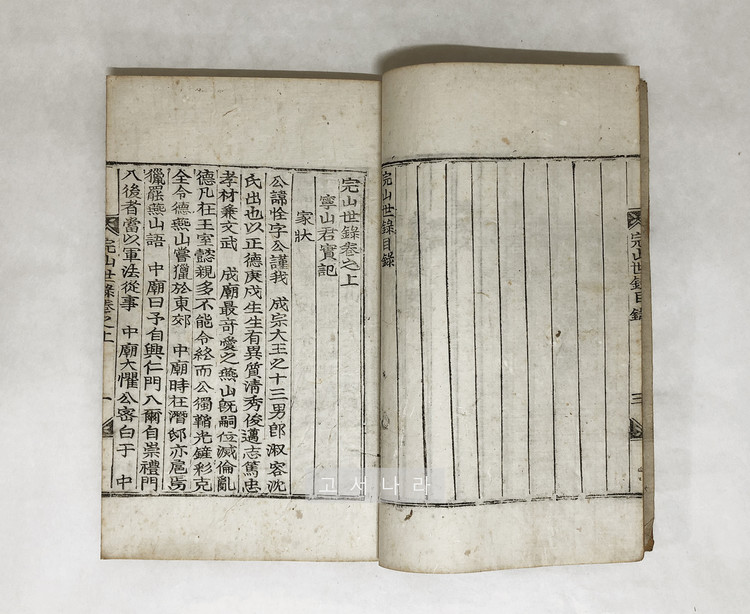 完山世錄目錄
三
完山世錄目錄
完山世錄卷之上
寧山君實記
家狀
公諱恮字公謹我 成宗大王之十三男郎淑容沈
氏出也以正德庚戌生生有異質淸秀俊邁志篤忠
孝材兼文武 成廟最奇愛之燕山旣嗣位滅倫亂
德凡在王室懿親多不能令終而公獨韜光鏟彩克
全令德燕山嘗獵於東郊 中廟時在潛邸亦扈焉
獵罷燕山語 中廟曰予自興仁門入爾自崇禮門
入後者當以軍法從事 中廟大懼公密白于 中
完山世錄卷之上
一
고서나라